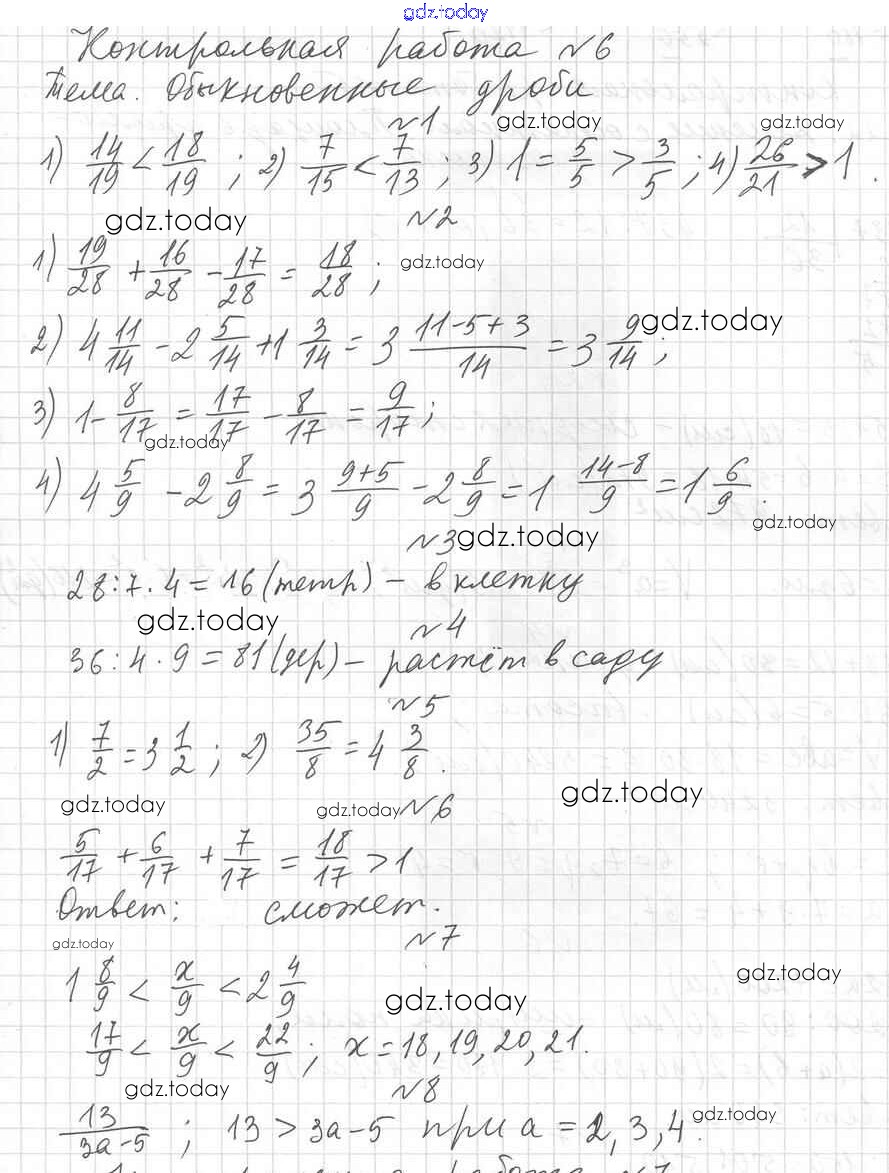 gdz.today
Контрольная работа №6
Тема. Обыкновенные дроби
№1 gdz.today gdz.today
1) 14/19 < 18/19 ; 2) 7/15 < 7/13 ; 3) 1 = 5/5 > 3/5 ; 4) 26/21 > 1 .
gdz.today №2
1) 19/28 + 16/28 - 17/28 = 18/28 ; gdz.today
2) 4 11/14 - 2 5/14 + 1 3/14 = 3 (11-5+3)/14 = 3 9/14 ; gdz.today
3) 1 - 8/17 = 17/17 - 8/17 = 9/17 ;
gdz.today
4) 4 5/9 - 2 8/9 = 3 (9+5)/9 - 2 8/9 = 1 (14-8)/9 = 1 6/9 .
gdz.today
№3 gdz.today
28 : 7 · 4 = 16 (тетр) - в клетку
gdz.today №4
36 : 4 · 9 = 81 (дер) - растёт в саду
№5
1) 7/2 = 3 1/2 ; 2) 35/8 = 4 3/8 .
gdz.today gdz.today №6 gdz.today
5/17 + 6/17 + 7/17 = 18/17 > 1
Ответ: сможет.
gdz.today №7
1 8/9 < x/9 < 2 4/9 gdz.today
gdz.today
17/9 < x/9 < 22/9 ; x = 18, 19, 20, 21.
gdz.today №8
13/(3a-5) ; 13 > 3a-5 при a = 2, 3, 4 . gdz.today